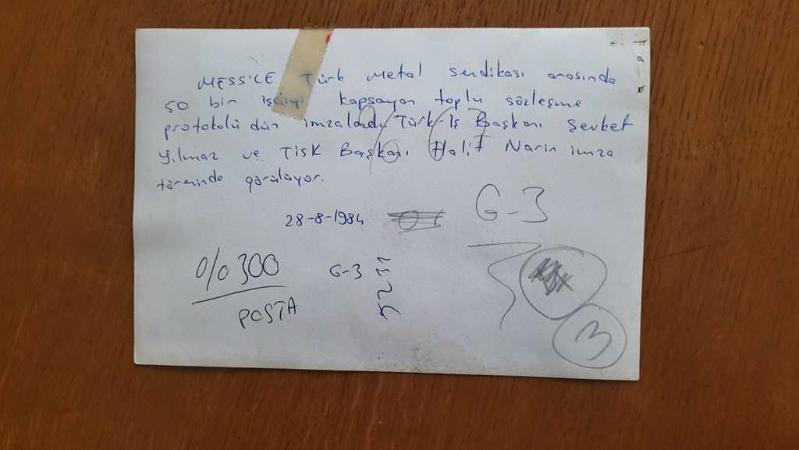 MESS'LE Türk Metal sendikası arasında
50 bin işçiyi kapsayan toplu sözleşme
protokolü dün imzalandı Türk İş Başkanı Şevket
Yılmaz ve TİSK Başkanı Halit Narin imza
töreninde görülüyor.
28-8-1984
G-3
%300
G-3
5211
POSTA
3